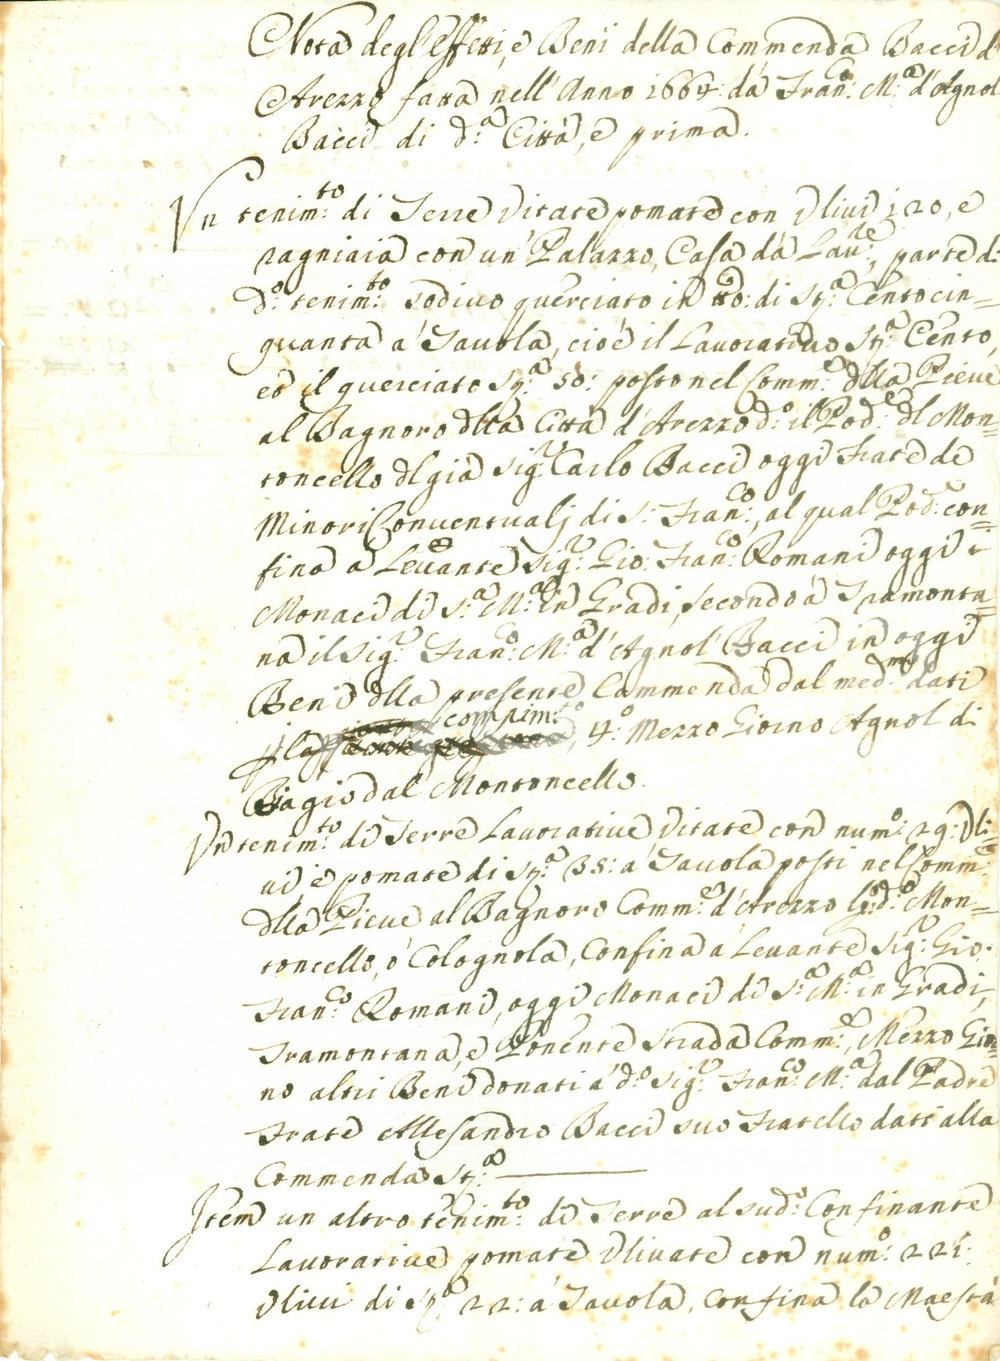 Nota degl'Effetti, e Beni della Commenda Bacci d'
Arezzo fatta nell'Anno 1664: da Fran:co M:a d'Agnol
Bacci di d:a Città, e prima.
Un tenim:to di Terre Vitate pomate con Ulivi 120, e
ragniaia con un Palazzo, Casa da Lau:re, parte d:
d:o tenim:to sodivo querciato in tto: di St:a Centocin=
quanta a' Tavola, cioè il Lavorativo St:a Cento,
et il querciato St:a 50: posto nel Comm:e dlla Pieve
al Bagnoro dlla Città d'Arezzo d:o il Pod:e dl Mon=
toncello dl già Sig:r Carlo Bacci oggi Frate de
Minori Conventualj di S: Fran:co, al qual Pod:e con=
fina a Levante Sig:r Gio: Fran:co Romani oggi i
Monaci di S:a M:a in Gradi, secondo a' Tramonta=
na il Sig:r Fran:co M:a d'Agnol Bacci in oggi
Beni dlla presente Commenda dal med:mo dati
p la compim:to, 4:o Mezzo Giorno Agnol di
Biagio dal Montoncello.
Un tenim:to di Terre Lavorative Vitate con num:o 29: Uli=
vi e pomate di St:a 35: a' Tavola posti nel Comm:e
dlla Pieve al Bagnoro Comm:e d'Arezzo l:o d:o Mon=
toncello, o' Colognola, Confina a' Levante Sig:r Gio:
Fran:co Romani, oggi Monaci di S:a M:a in Gradi,
Tramontana, e Ponente Strada Comm:e, Mezzo Gior=
no altri Beni donati a' d:o Sig:r Fran:co M:a dal Padre
Frate Allesandro Bacci suo Fratello dati alla
Commenda St:a
Item un altro tenim:to di Terre al sud:o Confinante
Lavorative pomate Ulivate con num:o 221:
Ulivi di St:a 22: a' Tavola, Confina la Maestà